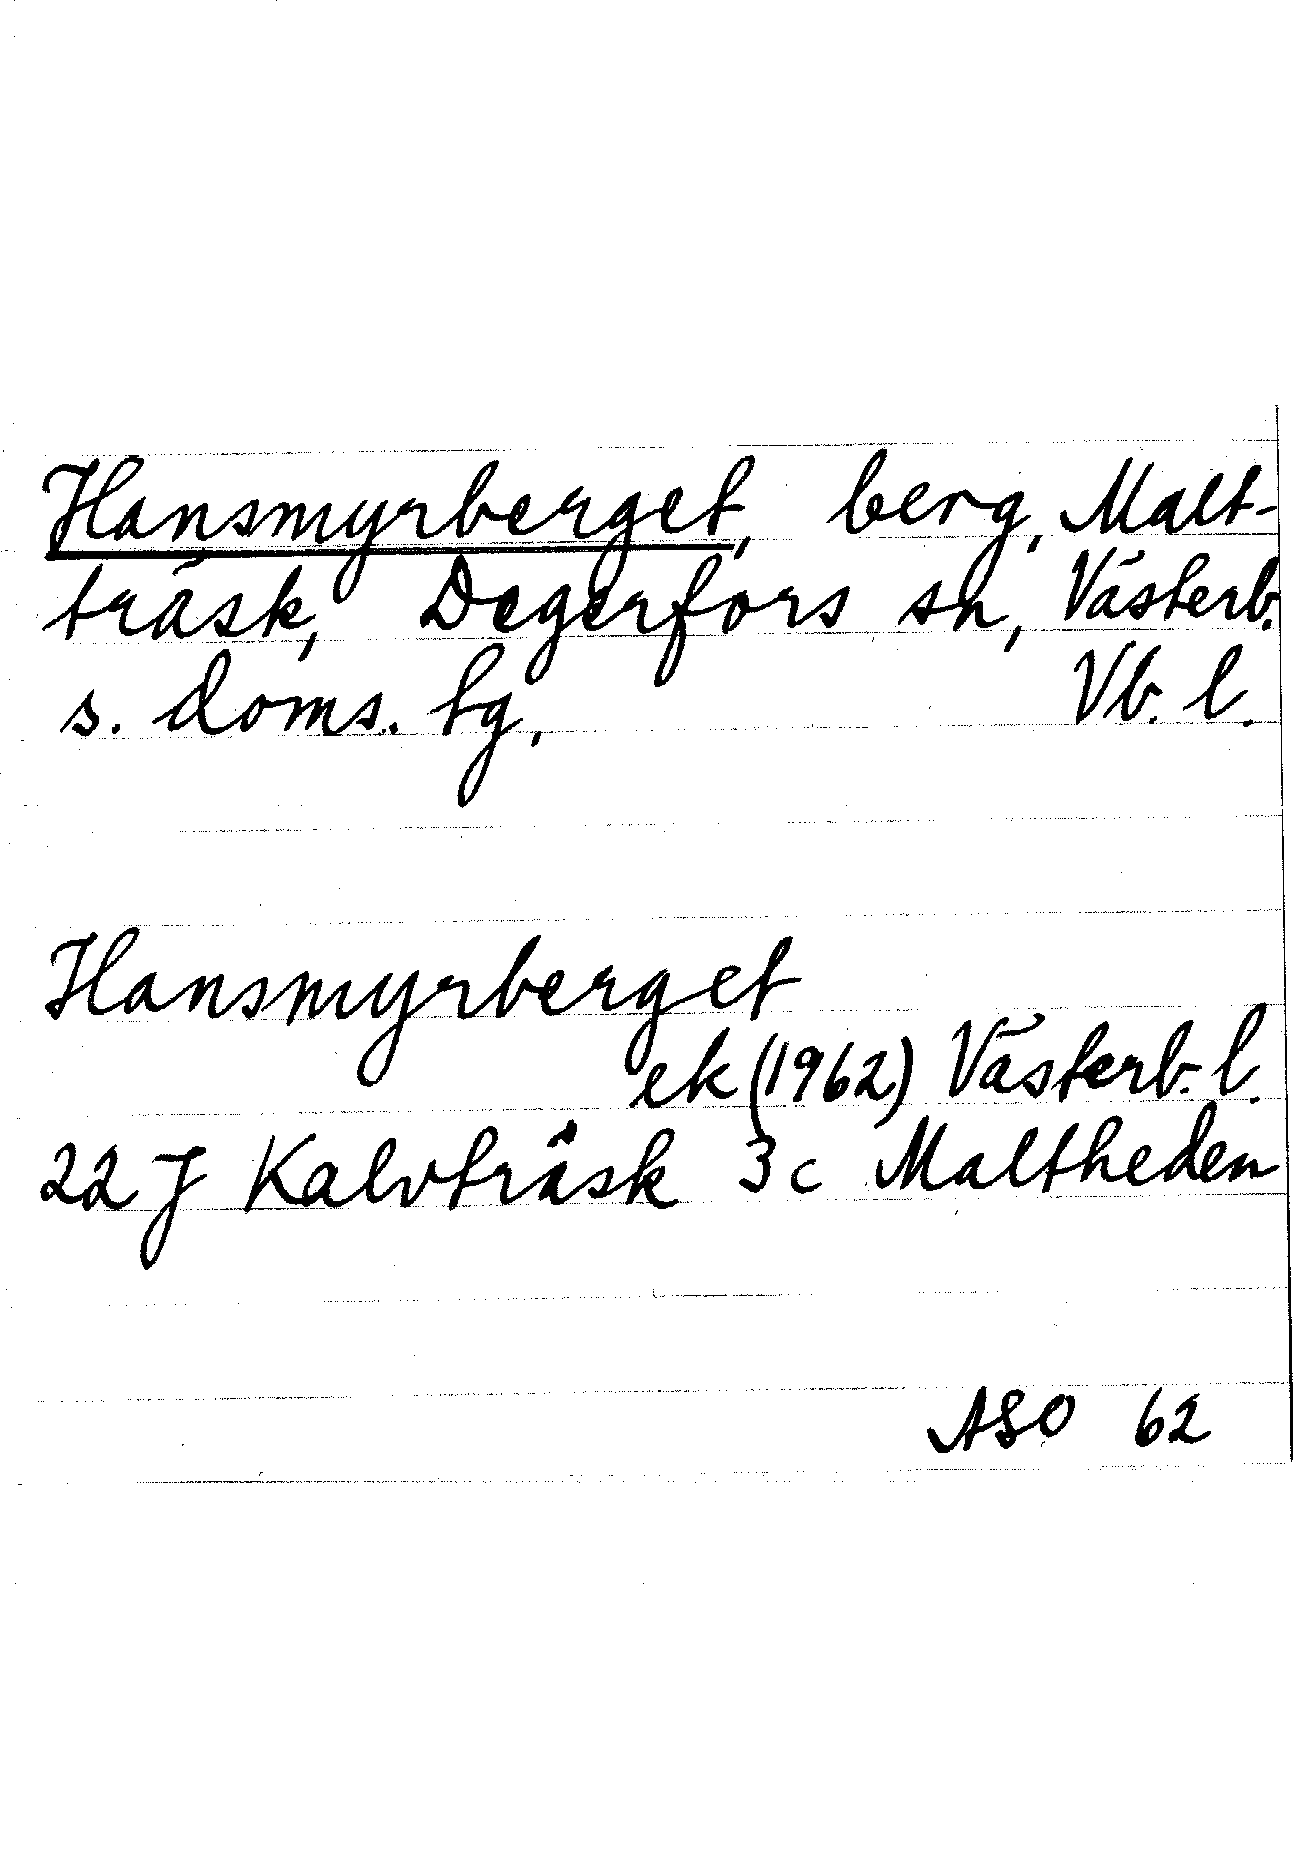 Hansmyrberget, berg, Malt-
träsk, Degerfors sn, Västerb.
s. doms. tg, Vb. l.
Hansmyrberget
ek (1962) Västerb. l.
22 J Kalvträsk 3 c Maltheden
ASO 62